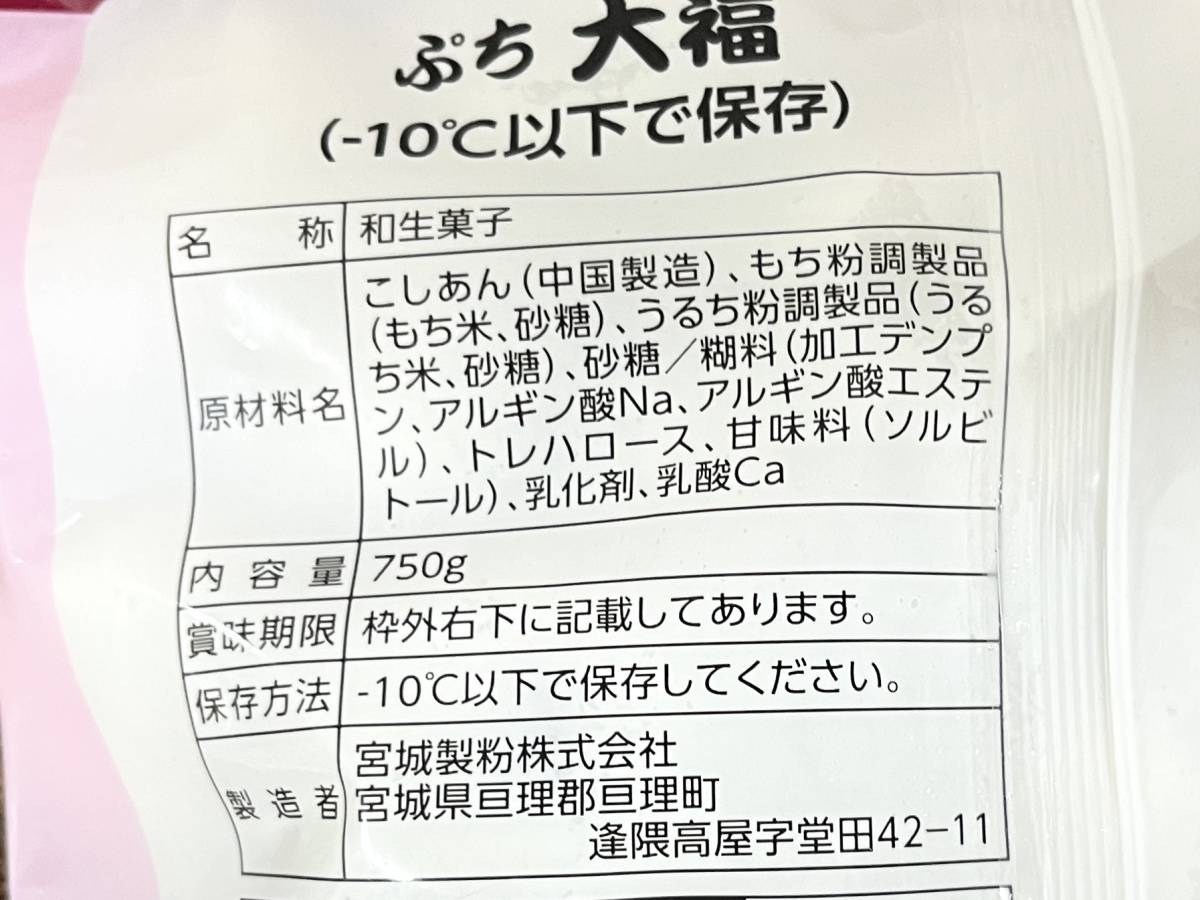 ぷち 大福
(-10℃以下で保存)
名称 和生菓子
原材料名 こしあん(中国製造)、もち粉調製品
(もち米、砂糖)、うるち粉調製品(うる
ち米、砂糖)、砂糖/糊料(加工デンプ
ン、アルギン酸Na、アルギン酸エステ
ル)、トレハロース、甘味料(ソルビ
トール)、乳化剤、乳酸Ca
内容量 750g
賞味期限 枠外右下に記載してあります。
保存方法 -10℃以下で保存してください。
製造者 宮城製粉株式会社
宮城県亘理郡亘理町
逢隈高屋字堂田42-11